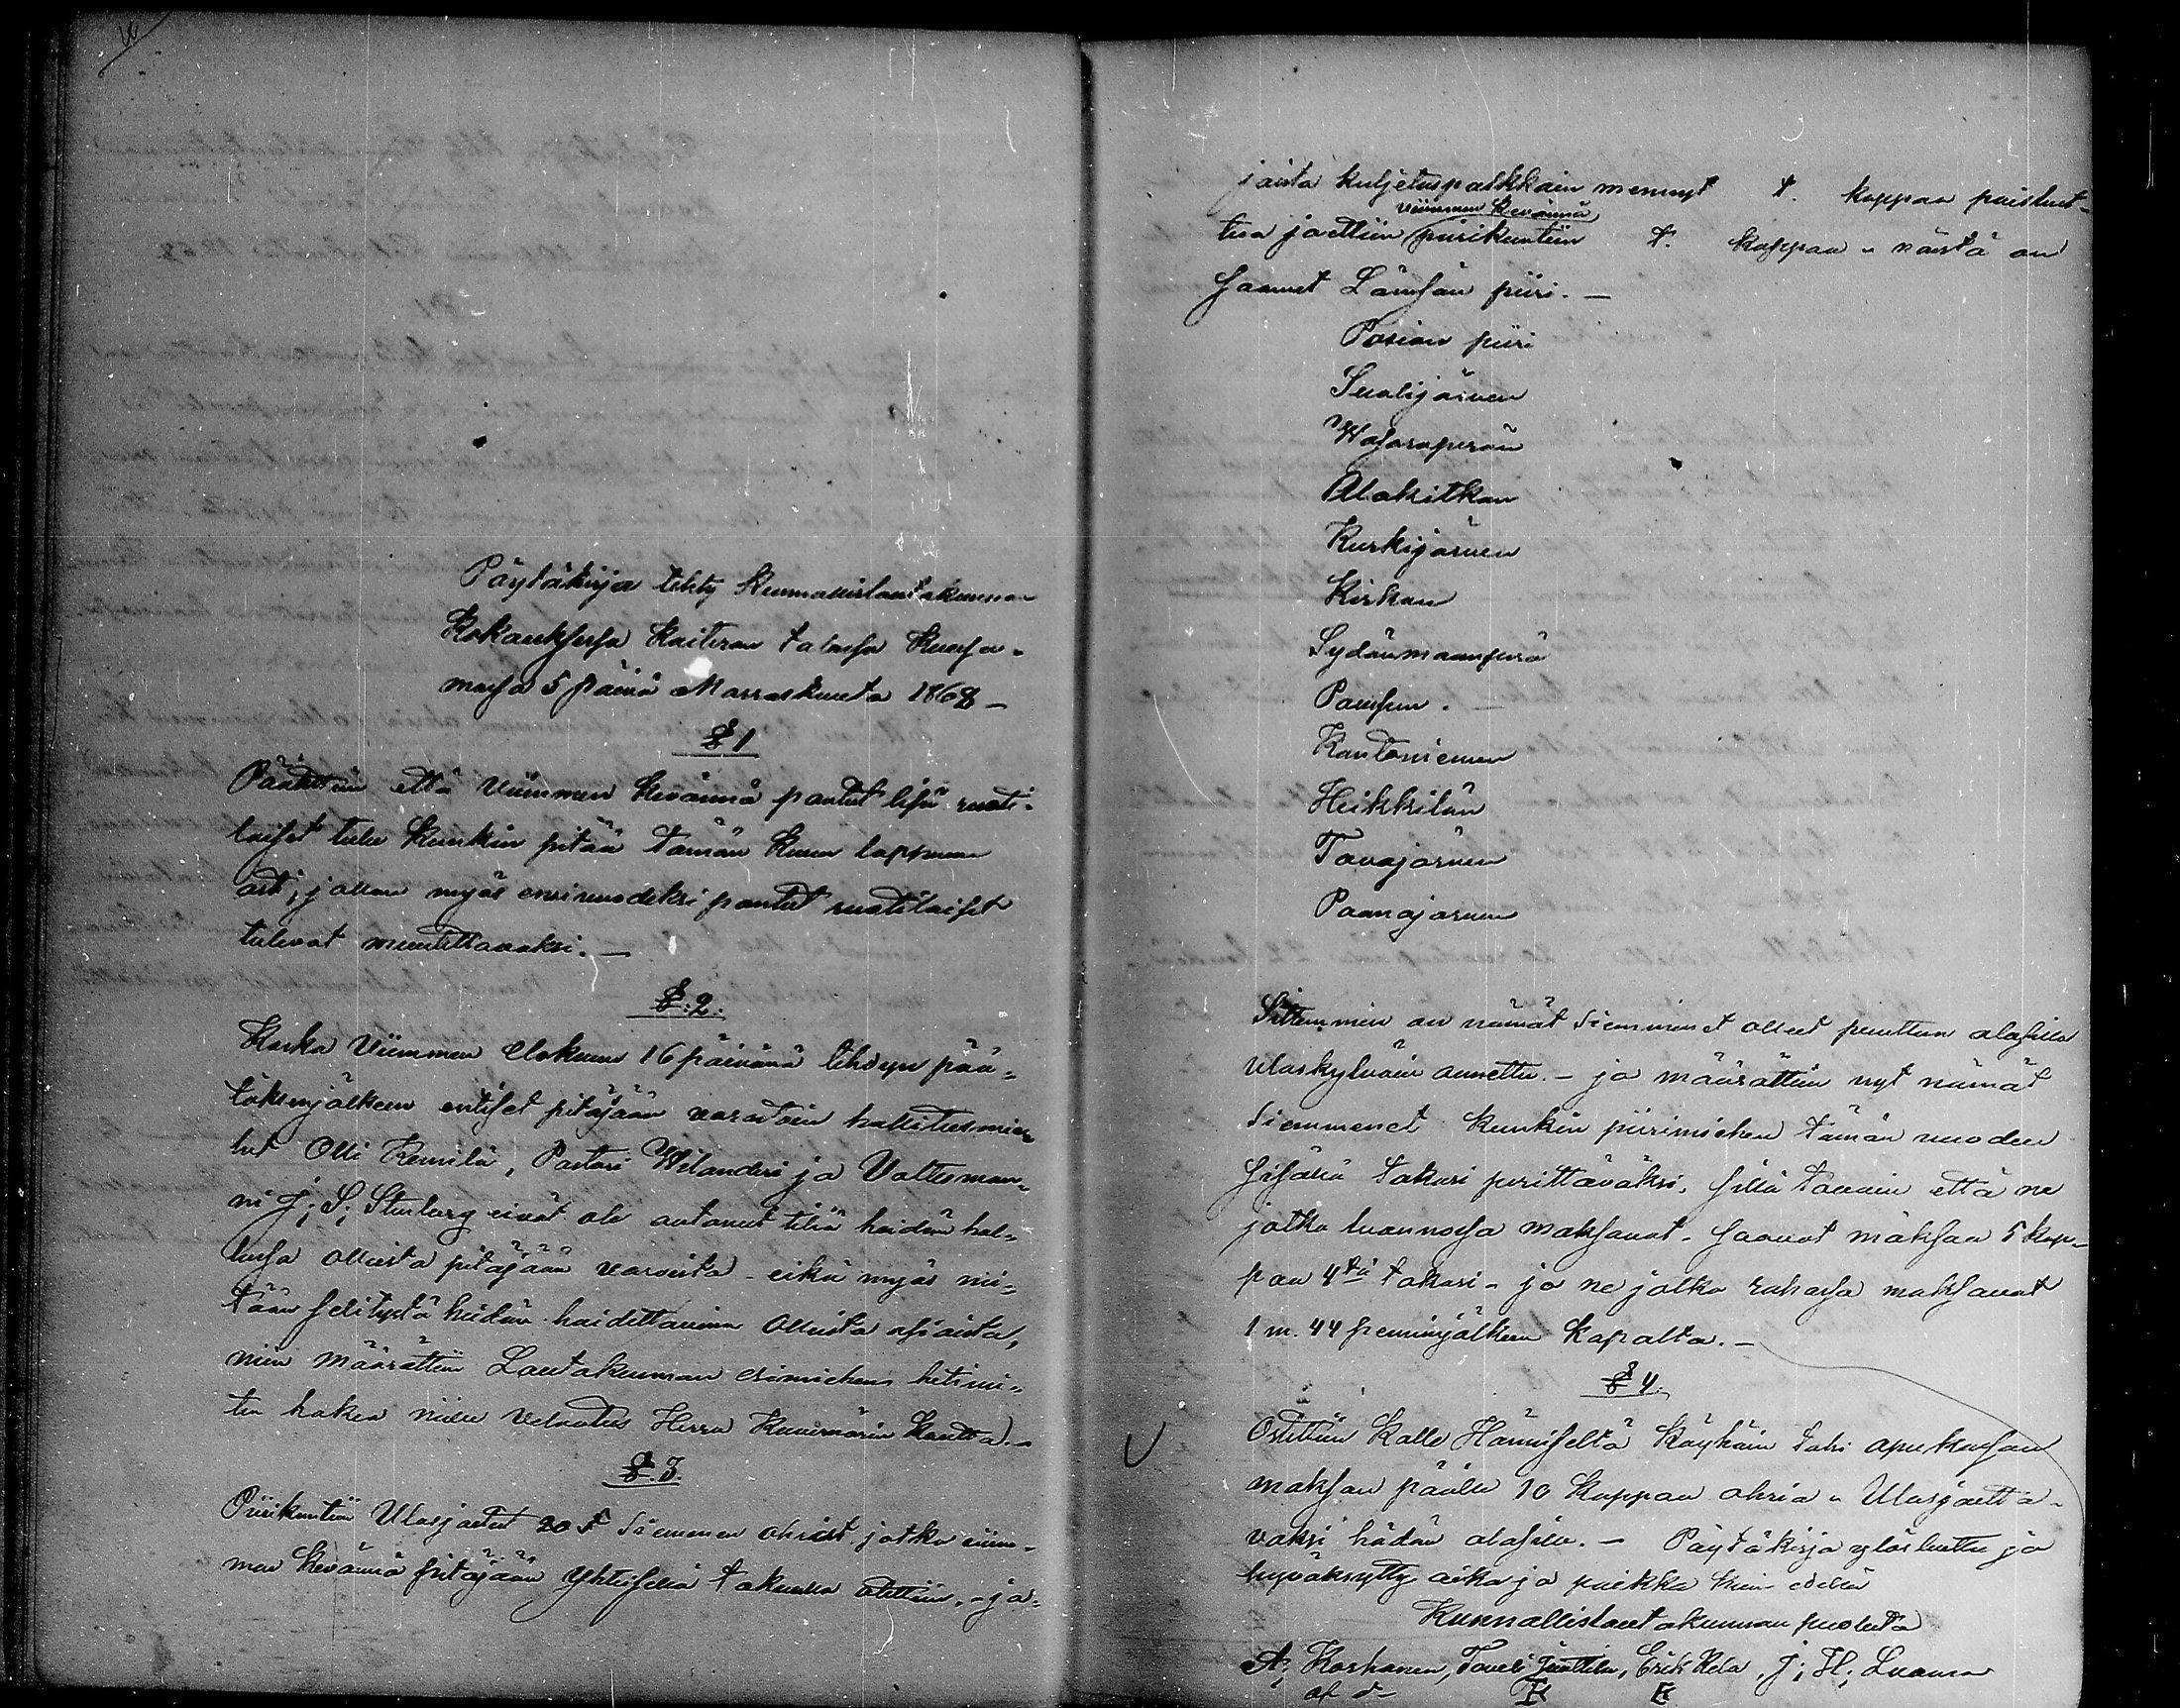 Päytäkirja tehty Kunnallislautakunnan
Kokauksessa Kaiteran talossa Kuusa-
mossa 5 päivä Marraskuuta 1868 —
§ 1
Päätettiin että viimmen kevännä pantut lisä ruoti-
laiset tulee kunkin pitää tämän kuun loppuun
asti, jolloin myös ensivuodeksi pantut ruotilaiset
tulevat muutettavaksi. —
§. 2.
Koska viimmen Elokuun 16 päivänä tehdyn pää-
töksenjälkeen entiset pitäjään varatoin hallitusmie-
het Olli Kemilä, Pastori Wilanderi ja Valtesman-
ni J; S; Stenberg eivät ole antanut tiliä heidän hal-
lussa olleista pitäjään varoista – eikä myös mi-
tään selitystä heidän hoidettavina olleista asioista,
niin määrättiin Lautakunnan esimiehen heti mi-
ten hakea niille velootus Herra Kuvernörin kautta. –
§. 3.
Piirikuntiin Ulosjaetut 20 t siemenen ohrist jotka viim-
men kevännä pitäjään yhteisellä takuulla otettiin, – jo-
joista kuljetuspalkkain mennyt t. kappaa puistuet-
viimmen kevännä
tua jaettiin piirikuntiin t. kappaa – näistä on
saanut Lämsän piiri. —
Posion piiri
Suolijärven
Wasaraperän
Alakitkan
Kurkijärven
Kirkon
Sydänmaanperä
Poussun. —
Kantoniemen
Heikkilän
Tavajärven
Paanajärven
Sittemmin on nämät siemmenet olleet puutteen alasille
uloskylväin annettu. – ja määrättiin nyt nämät
siemmenet kunkin piirimiehen tämän vuoden
sisällä takasi perittäväksi, sillä tavain että ne
jotka luonnossa maksavat. saavat maksaa 5 kap-
paa 4tä takasi – ja ne jotka rahassa maksavat
1 m. 44 penninjälkeen kapalta. —
§ 4.
Ostettiin Kalle Hämiseltä Köyhäin talri apukassan
maksan päälle 10 kappaa ohria – Ulosjaetta-
vaksi hädän alasille. — Päytäkirja ylösluettu ja
hyväksytty aika ja paikka kuin edellä
Kunnallislautakunnan puolesta
A; Korhonen, Taveli Junttila, Erik Kela, J; H; Luoma